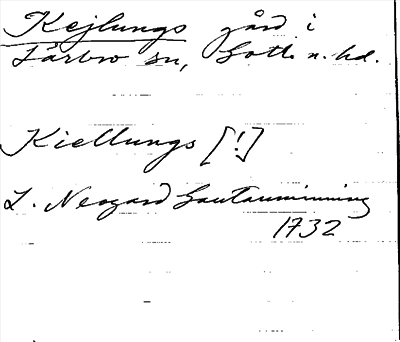 Kejlungs gård i
Lärbro sn, Gotl. n. hd.
Kiellungs [!]
L. Neogard Gautauminning
1732